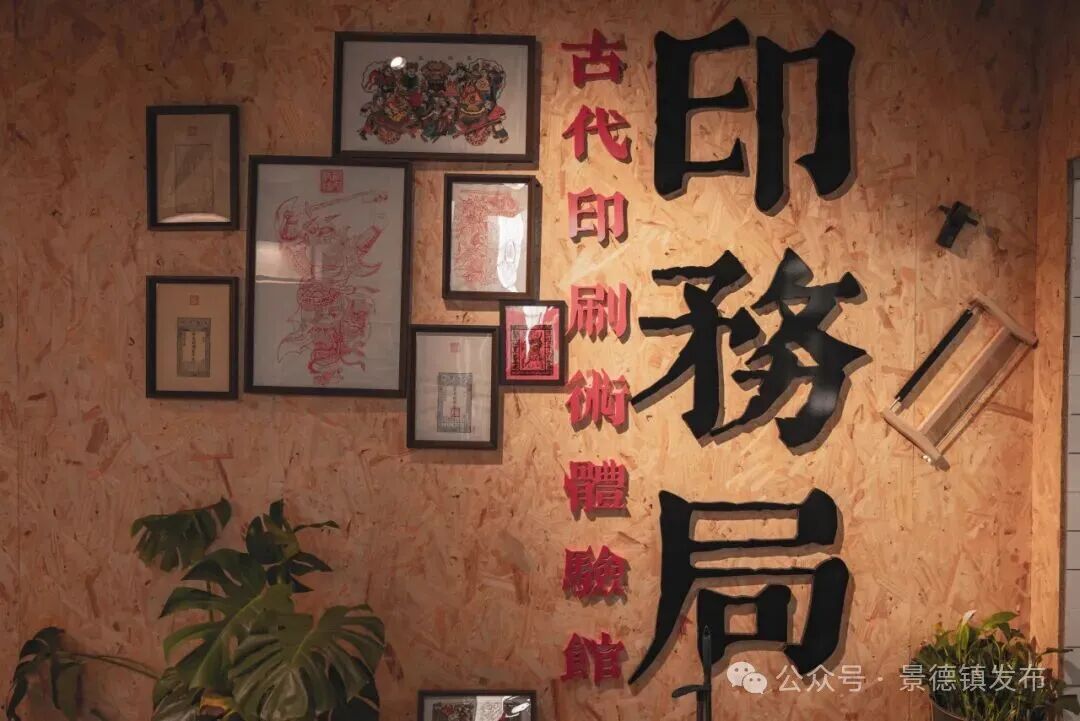 印務局
古代印刷術體驗館
公众号 · 景德镇发布